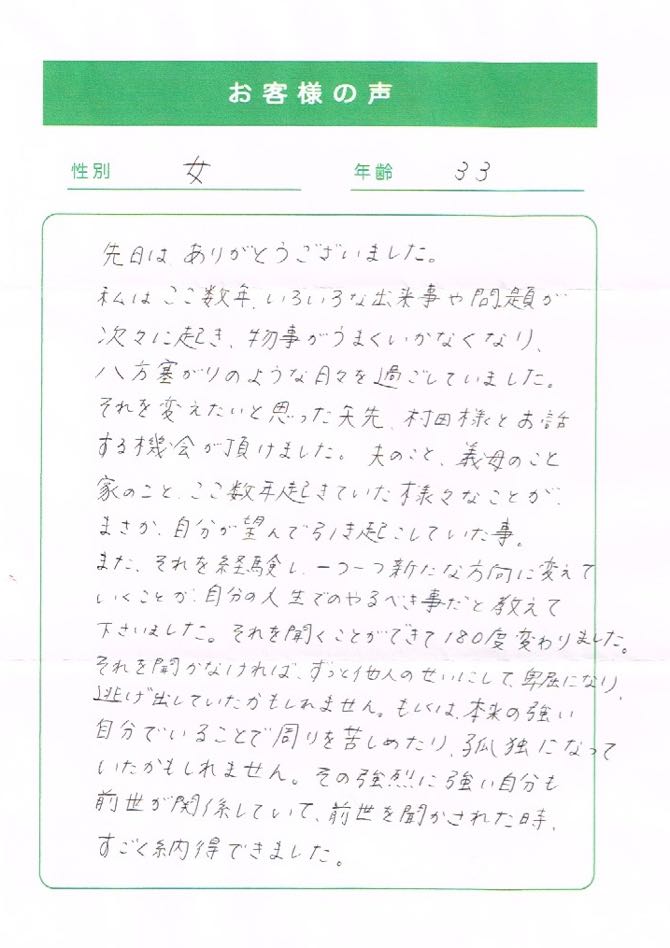 お客様の声
性別 女 年齢 33
先日は、ありがとうございました。
私はここ数年、いろいろな出来事や問題が
次々に起き、物事がうまくいかなくなり、
八方塞がりのような日々を過ごしていました。
それを変えたいと思った矢先、村田様とお話
する機会が頂けました。夫のこと、義母のこと
家のこと、ここ数年起きていた様々なことが、
まさか、自分が望んで引き起こしていた事。
また、それを経験し、一つ一つ新たな方向に変えて
いくことが、自分の人生でのやるべき事だと教えて
下さいました。それを聞くことができて180度変わりました。
それを聞かなければ、ずっと他人のせいにして、卑屈になり、
逃げ出していたかもしれません。もしくは、本来の強い
自分でいることで周りを苦しめたり、孤独になって
いたかもしれません。その強烈に強い自分も
前世が関係していて、前世を聞かされた時、
すごく納得できました。